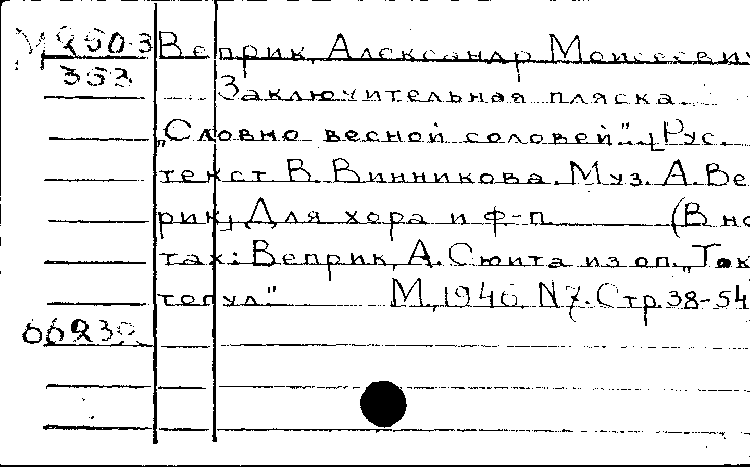 М 250-3 Веприк, Александр Моисеевич
353 Заключительная пляска.
"Словно весной соловей". [Рус.
текст В. Винникова. Муз. А. Ве
рик, Для хора и ф-п. (В но
тах: Веприк, А. Сюита из оп. "Ток
топул" М., 1946 N7. Стр. 38-54
66239